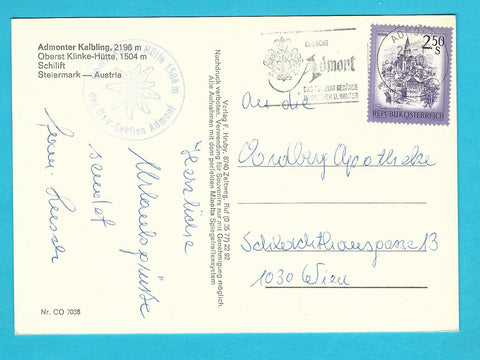 Admonter Kalbling, 2196 m
Oberst Klinke-Hütte, 1504 m
Schilift
Steiermark — Austria
Hütte 1504 m
der ÖAV-Sektion Admont
Herzliche
Urlaubsgrüße
sendet
Fam.
Nr. CO 7038
Verlag F. Hruby, 8740 Zeltweg, Ruf (0 35 77) 22 92
Nachdruck verboten. Verwendung für Souvenirs nur mit Genehmigung möglich.
Alle Aufnahmen mit dem perfekten Minolta Spiegelreflexsystem
BESUCHT
Admont
DAS TOR ZUM GESÄUSE
IM SOMMER U. WINTER
ADMONT
2.50
S
REPUBLIK ÖSTERREICH
An die
Apotheke
Schlachthausgasse 13
1030 Wien